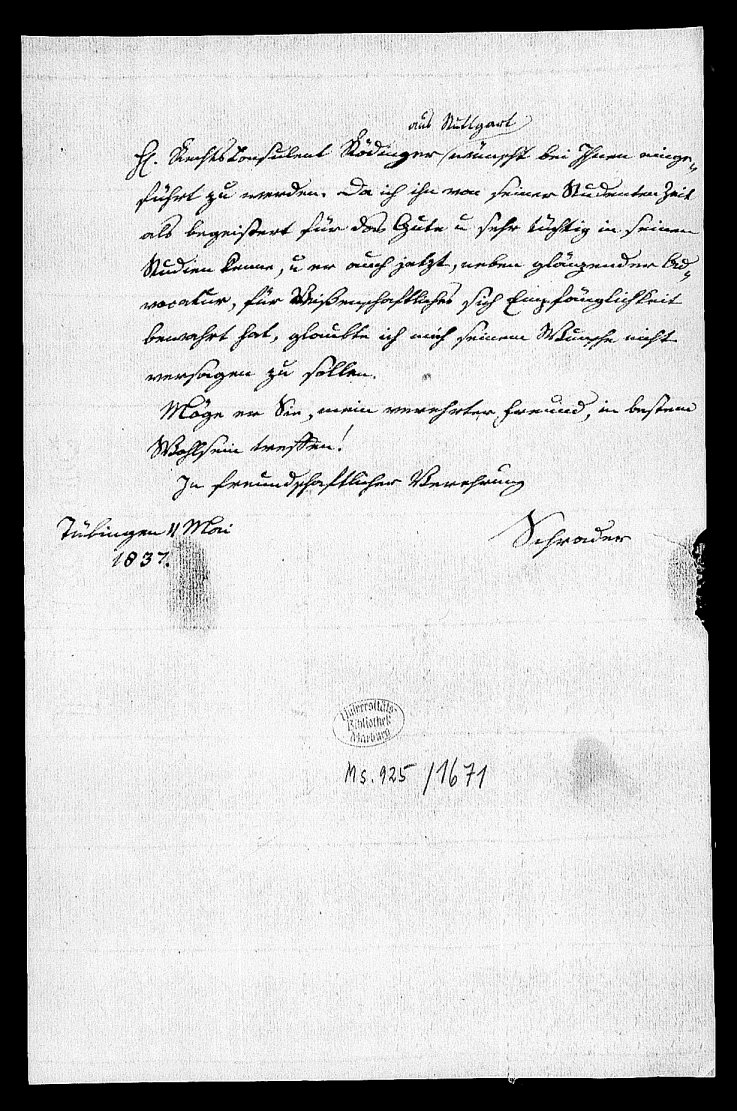 aus Stuttgart
H. RechtsConsulent Rödinger wünscht bei Ihnen einge-
führt zu werden. Da ich ihn von seiner Studenten Zeit
als begeistert für das Gute u sehr tüchtig in seinen
Studien kenne, u er auch jetzt, neben glänzender Ad-
vocatur, für Wißenschaftliches sich Empfänglichkeit
bewahrt hat, glaubte ich mich seinem Wunsche nicht
versagen zu sollen.
Möge er Sie, mein verehrter Freund, in bestem
Wohlsein treffen!
In freundschaftlicher Verehrung
Tübingen 11 Mai
Schrader
1837.
Universitäts-
Bibliothek
Marburg
Ms. 925/1671